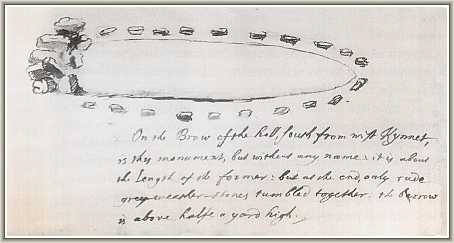 On the Brow of the hill, South from west Kynnet,
is this monument, but without any name: it is about
the length of the former: but at the end, only rude
grey-weather-stones tumbled together. the barrow
is above halfe a yard high.